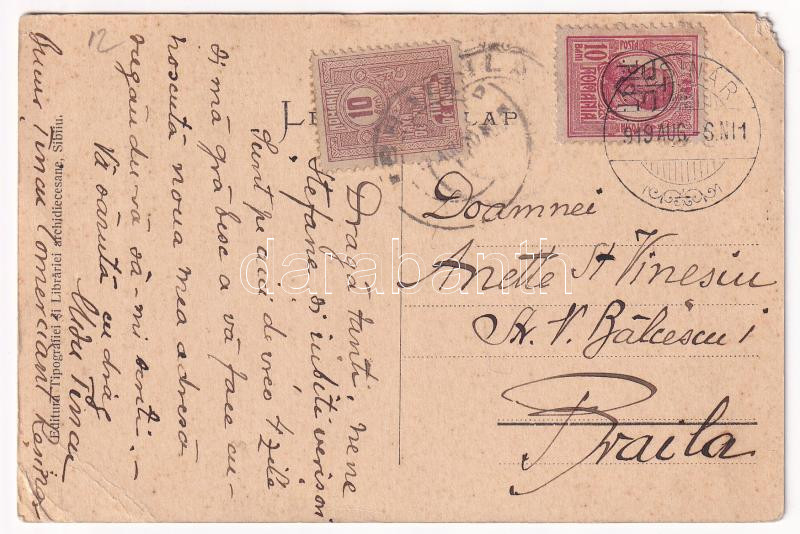 12
Dragă tanti, nene
Ștefane, și iubiți verișori,
Sunt pe aici de vreo 4 zile
și mă grăbesc a vă face cu-
noscută noua mea adresă
rugându-vă să-mi scrieți.-
Vă sărută cu drag
Tincu
Tincu Comerciant
Editura Tipografiei și Librăriei archidiecesane, Sibiiu.
LAP
10
BRAILA
10
Bani
ROMANIA
919 AUG
6.N11
Doamnei
Anette St Vinesiu
Str. V. Bălcescu 1
Braila
darabanth